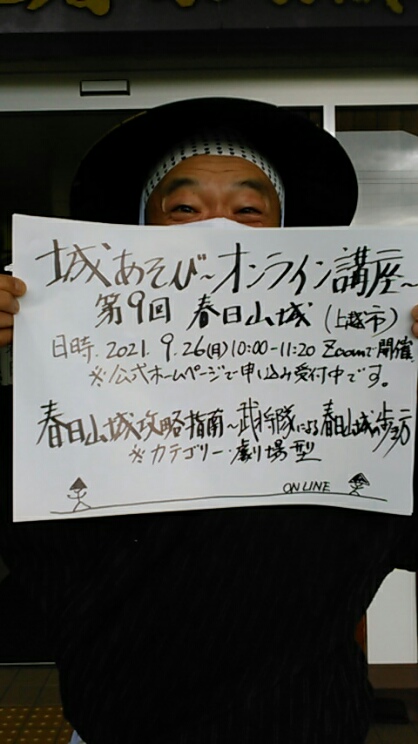 城あそび~オンライン講座~
第9回 春日山城 (上越市)
日時. 2021. 9. 26(月) 10:00-11:20 Zoomで開催.
※公式ホームページで申し込み受付中です。
春日山城攻略指南~武将隊による春日山城の歩き方
※カテゴリー・劇場型
ONLINE